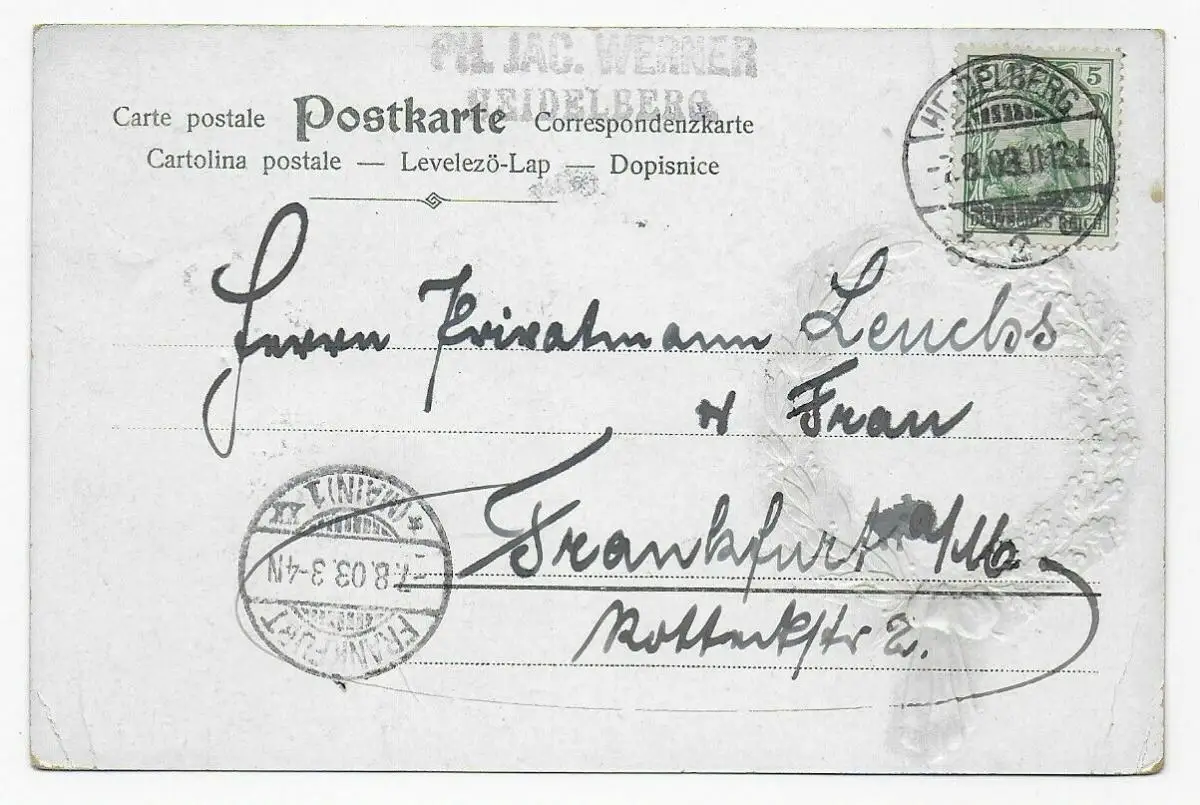 PH. JAC. WERNER
HEIDELBERG.
Carte postale Postkarte Correspondenzkarte
Cartolina postale — Levelezö-Lap — Dopisnice
5
DEUTSCHES REICH
HEIDELBERG
7.8.03.11-12
* 2
Herrn Privatmann Leuchs
& Frau
Frankfurt a/M.
Rotteckstr 2.
FRANKFURT
-7.8.03 3-4N
* (MAIN) 1